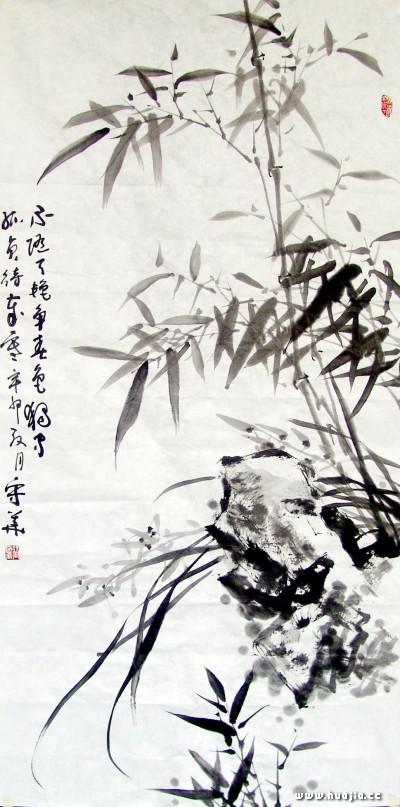 不随夭艳争春色独守
孤贞待岁寒辛卯月華
www.huajia.cc